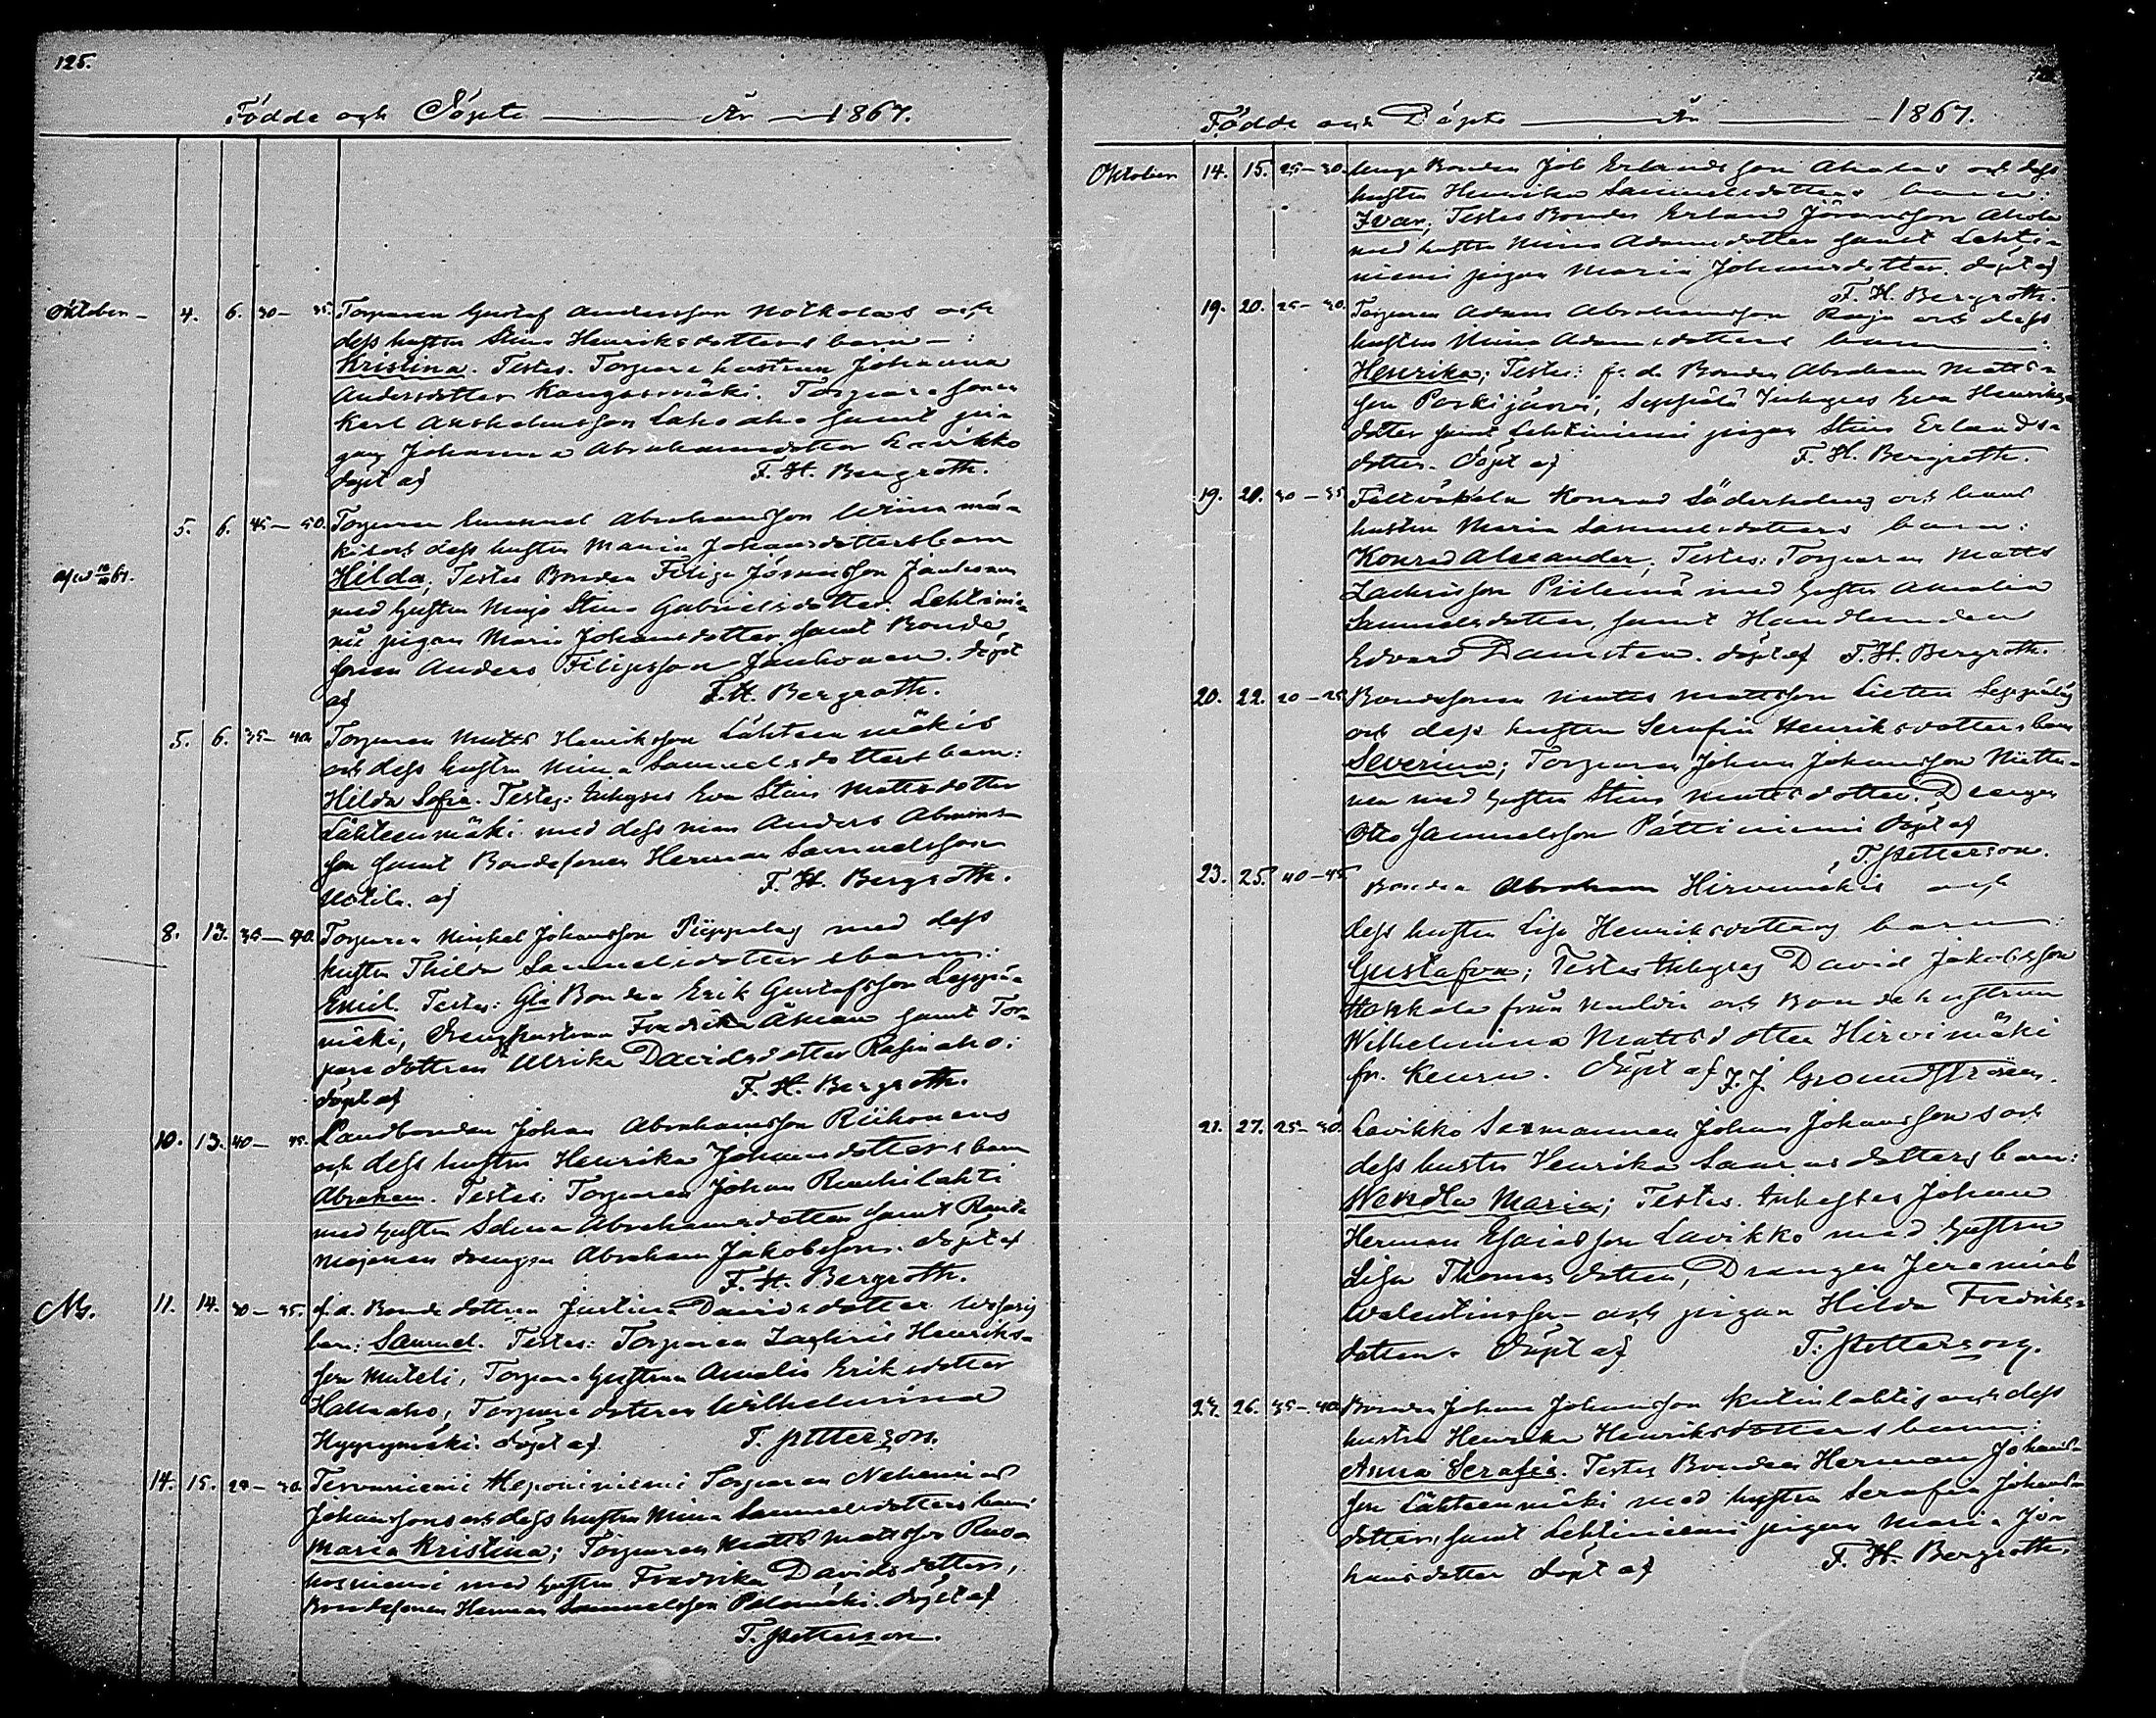 125.
Födde och Döpte — År — 1867.
Oktober — 4. 6. 30 — 35. Torparen Gustaf Andersson Notkolas och
dess hustru Stina Henriksdotters barn — :
Kristina. Testes. Torpare hustrun Johanna
Andersdotter Kangasmäki. Torpare sonen
Karl Lahoaho samt pi-
gan Johanna Abrahamsdotter Lavikko
döpt af F. H. Bergroth.
5. 6. 45 — 50. Torparen Emanuel Abrahamsson Wiinamä-
kis och dess hustru Maria Johansdotters barn
Hilda; Testes Bonden Filip Jöransson Jauhonen
med hustru Maja Stina Gabrielsdotter. Lehtinie-
mi pigan Maria Johansdotter samt Bonde
sonen Anders Filipsson Jauhonen. döpt
af F. H. Bergroth.
5. 6. 35 — 40. Torparen Matts Henriksson Lähteenmäkis
och dess hustru Mina Samuelsdotters barn:
Hilda Sofia. Testes: Inhyses Eva Stina Mattsdotter
Lähteenmäki med dess man Anders
son samt Bondesonen Herman Samuelsson
af F. H. Bergroth.
8. 13. 40. Torparen Mickel Johansson Piippolas med dess
hustru Thilda Samuelsdotters barn:
Emil. Testes: Gla Bonden Erik Gustafsson Leppä-
mäki, Drenghustrun Fredrika Åman samt Tor-
pare dottren Ulrika Davidsdotter Rasinaho.
döpt af F. H. Bergroth.
10. 13. 40 — 45. Landbonden Johan Abrahamsson Riihonens
och dess hustru Henrika Johansdotters barn
Abraham. Testes: Torparen Johan Ruuhilahti
med hustru Selma Abrahamsdotter samt
drengen Abraham Jakobsson. döpt af
F. H. Bergroth.
11. 14. 30 — 35. f.d. Bonde dottren Justina Davidsdotter
barn: Samuel. Testes: Torparen Zachris Henriks-
son Muteli, Torpare hustrun Amalia Eriksdotter
Halkoaho, Torpare dottren Wilhelmina
Hyypymäki. döpt af T. Petterson.
14. 15. 30. Tervaniemi Heponiemi Torparen Nehemias
Johanssons och dess hustru Mina Samuelsdotters barn
Maria Kristina; Torparen Matts Mattsson
med hustru Fredrika Davidsdotter,
Bondesonen Herman Samuelsson Palomäki. döpt af
T. Petterson.
Födde och Döpte — År — 1867.
Oktober 14. 15. 25 — 30. Unga Bonden Job Erlandsson Aholas och dess
hustru Henrika Samuelsdotters barn:
Ivar; Testes Bonden Erland Jöransson Ahola
med hustru Mina Adamsdotter samt Lehti-
niemi pigan Maria Johansdotter. döpt af
F. H. Bergroth.
19. 20. 25 — 30. Torparen Adam Abrahamsson och dess
hustru Mina Adamsdotters barn — :
Henrika; Testes: f. d. Bonden Abraham Matts-
son Poskijärvi, Seppälä Inhyses Eva Henriks-
dotter samt Lehtiniemi pigan Stina Erlands-
dotter. Döpt af F. H. Bergroth.
19. 20. 30 — 35 Konrad Söderholms och hans
hustru Maria Samuelsdotters barn:
Konrad Alexander; Testes: Torparen Matts
Zachrisson Piilemä med hustru Amalia
Samuelsdotter, samt Handlanden
Edvard Damsten. döpt af F. H. Bergroth.
20. 22. 20 — 25. Bondesonen Matts Mattsson Lieten Seppäläs
och dess hustru Serafia Henriksdotters barn
Severina; Torparen Johan Johansson
med hustru Stina Mattsdotter. Drengen
Otto Samuelsson Pättiniemi döpt af
T. Petterson.
23. 25. 40 — 45. Bonden Abraham Hirvimäkis och
dess hustru Lisa Henriksdotters barn:
Gustafva; Testes Inhyses David Jakobsson
från Multia och Bonde hustrun
Wilhelmina Mattsdotter Hirvimäki
fr. Keuru. Döpt af J. J. Groundström.
21. 27. 25 — 30. Lavikko Johan Johanssons och
dess hustru Henrika dotters barn:
Wendla Maria; Testes. Inhyses Johan
Herman Esaiasson Lavikko med hustru
Lisa Thomasdotter, Drengen Jeremias
Valentinsson och pigan Hilda Fredriks-
dotter. Döpt af T. Petterson.
26. 35 — 40. Bonden Johan Johansson Kutinlahtis och dess
hustru Henrika Henriksdotters barn:
Anna Serafia. Testes Bonden Herman Johans-
son Lähteenmäki med hustru Serafia Johans-
dotter, samt Lehtiniemi pigan Maria Jo-
hansdotter döpt af F. H. Bergroth.